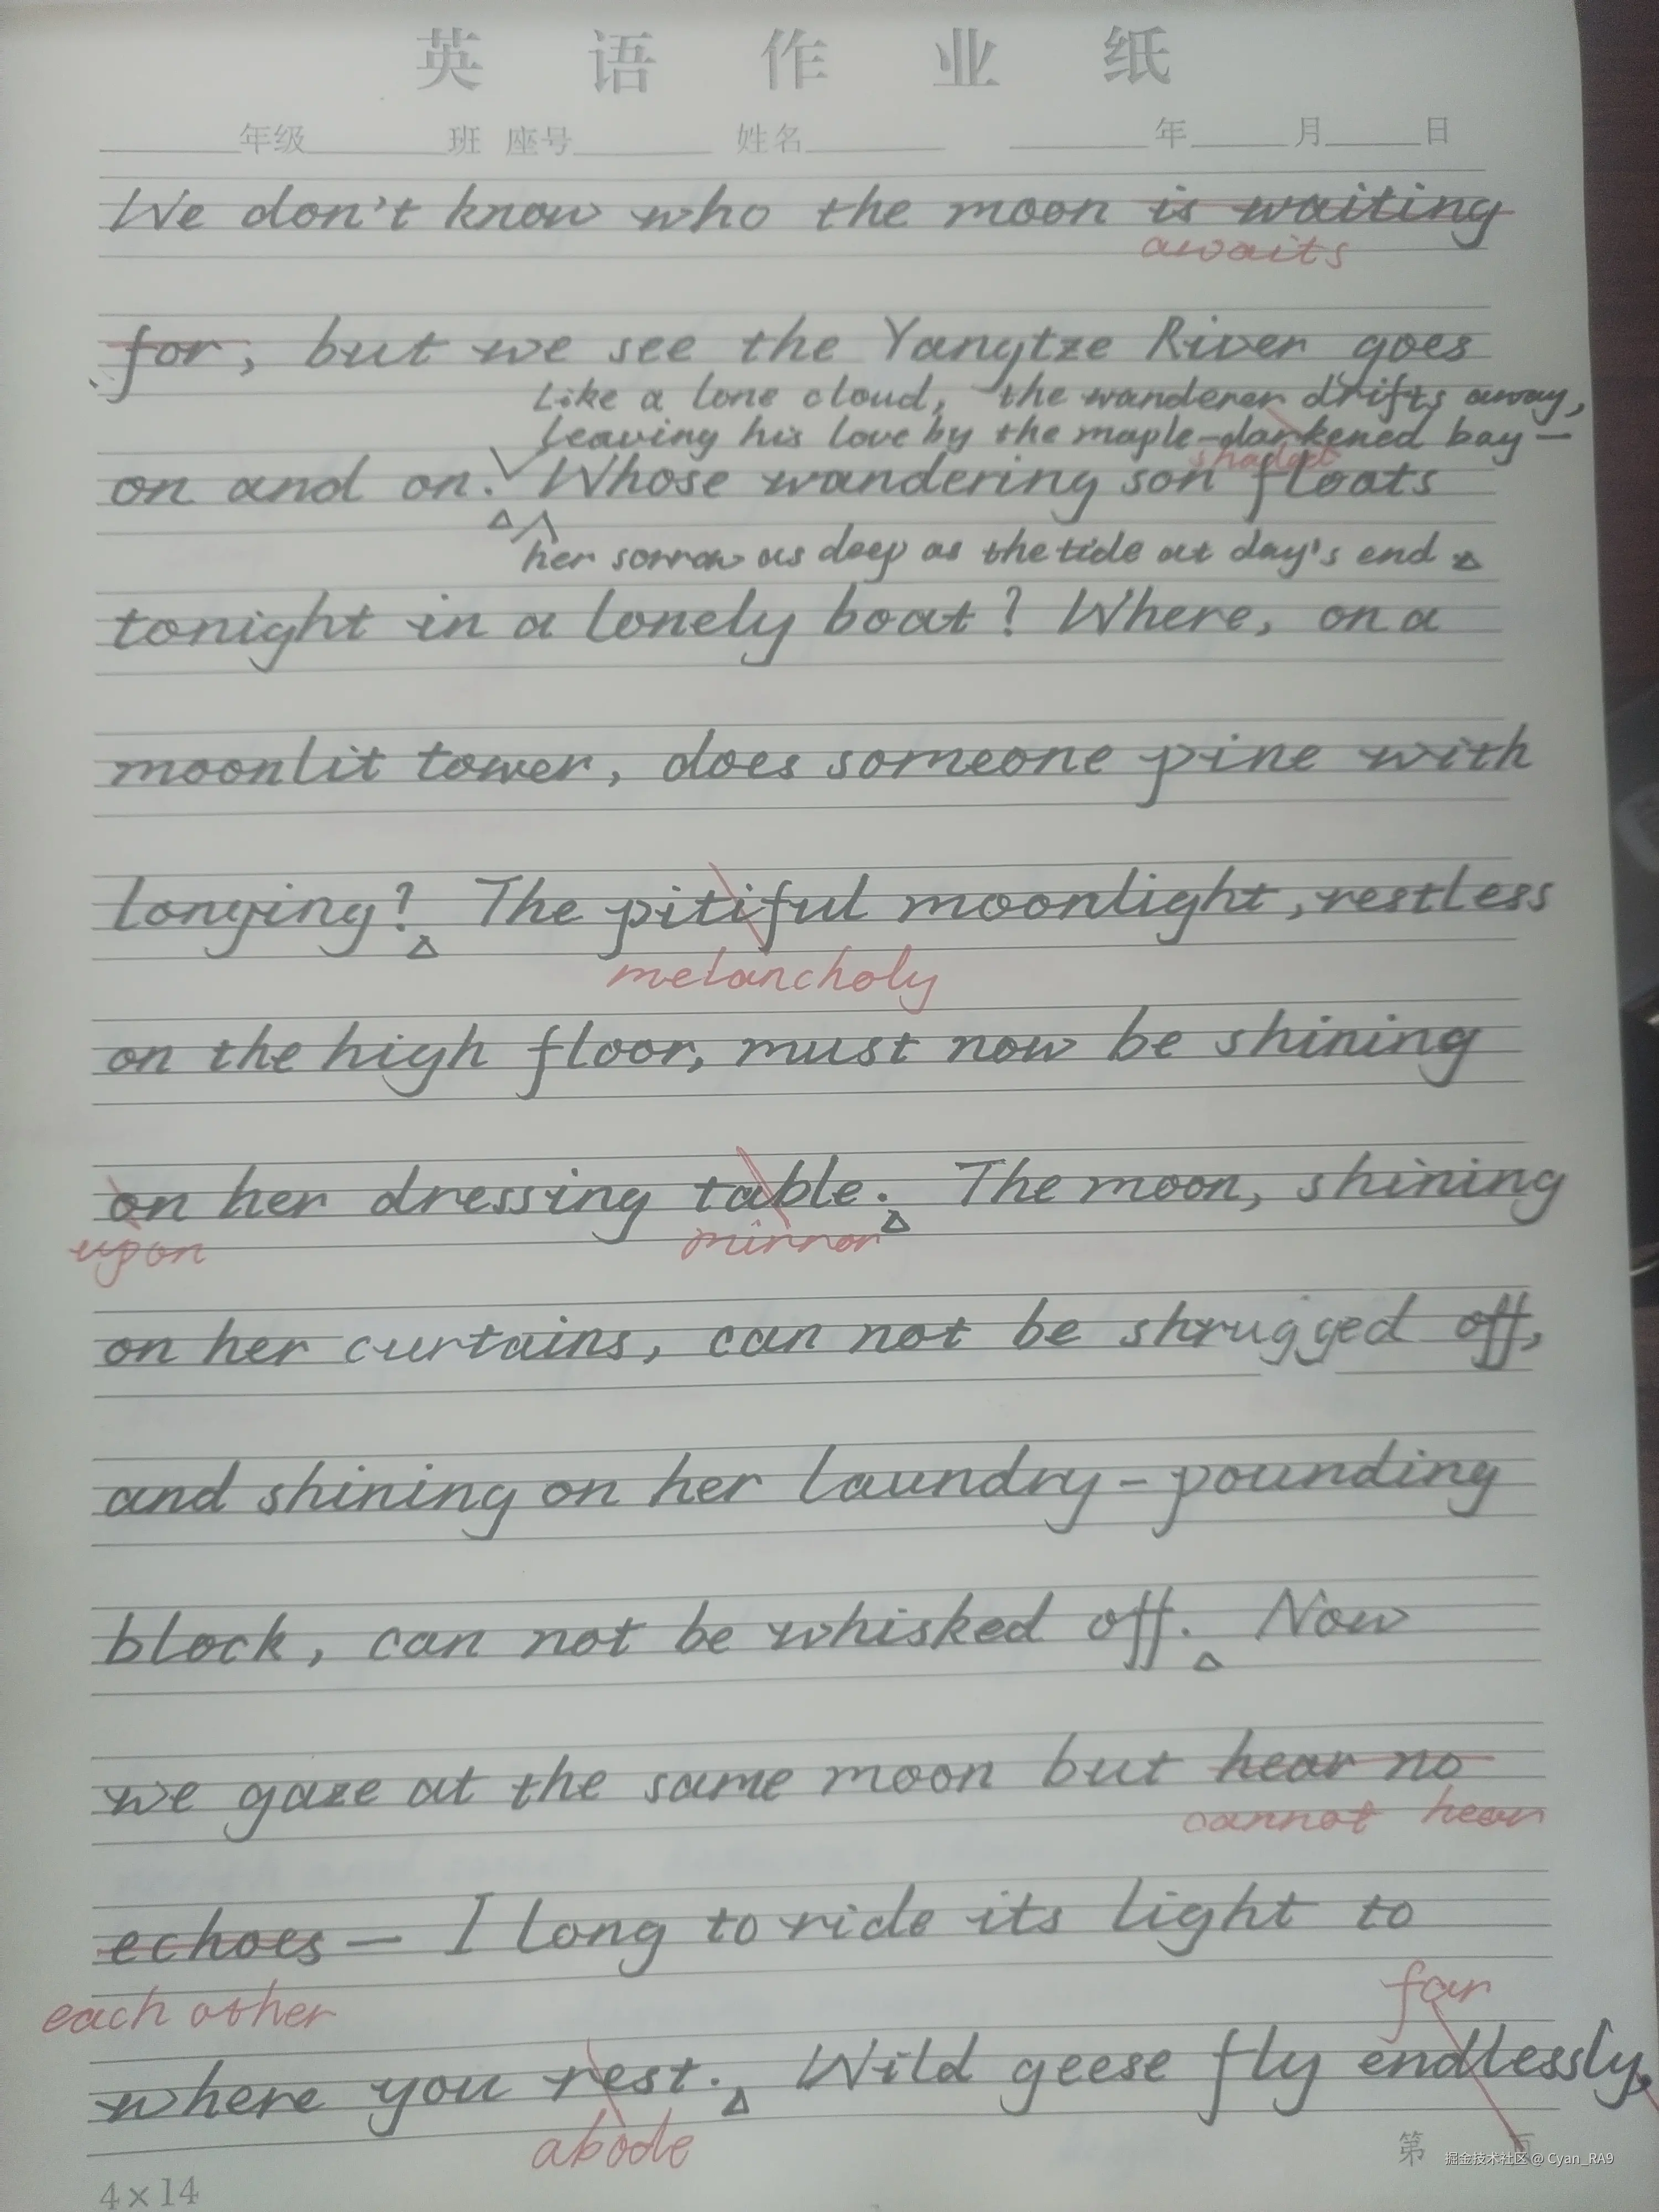 英语作业纸
年级 班 座号 姓名 年 月 日
We don't know who the moon is waiting
awaits
for, but we see the Yangtze River goes
Like a lone cloud, the wanderer drifts away,
leaving his love by the maple-darkened bay—
shaded
on and on. Whose wandering son floats
her sorrow as deep as the tide at day's end
tonight in a lonely boat? Where, on a
moonlit tower, does someone pine with
longing? The pitiful moonlight, restless
melancholy
on the high floor, must now be shining
on her dressing table. The moon, shining
upon mirror
on her curtains, can not be shrugged off,
and shining on her laundry-pounding
block, can not be whisked off. Now
we gaze at the same moon but hear no
cannot hear
echoes— I long to ride its light to
each other far
where you rest. Wild geese fly endlessly,
abode
第 页
4×14
掘金技术社区 @ Cyan_RA9